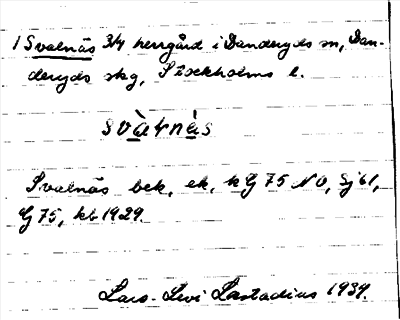 1 Svalnäs 3/4 herrgård i Danderyds sn, Dan-
deryds skg, Stockholms l.
svàtnàs
Svalnäs bek, ek, k G 75 NO, Sj 61,
G 75, kb 1929.
Lars-Levi Læstadius 1934.